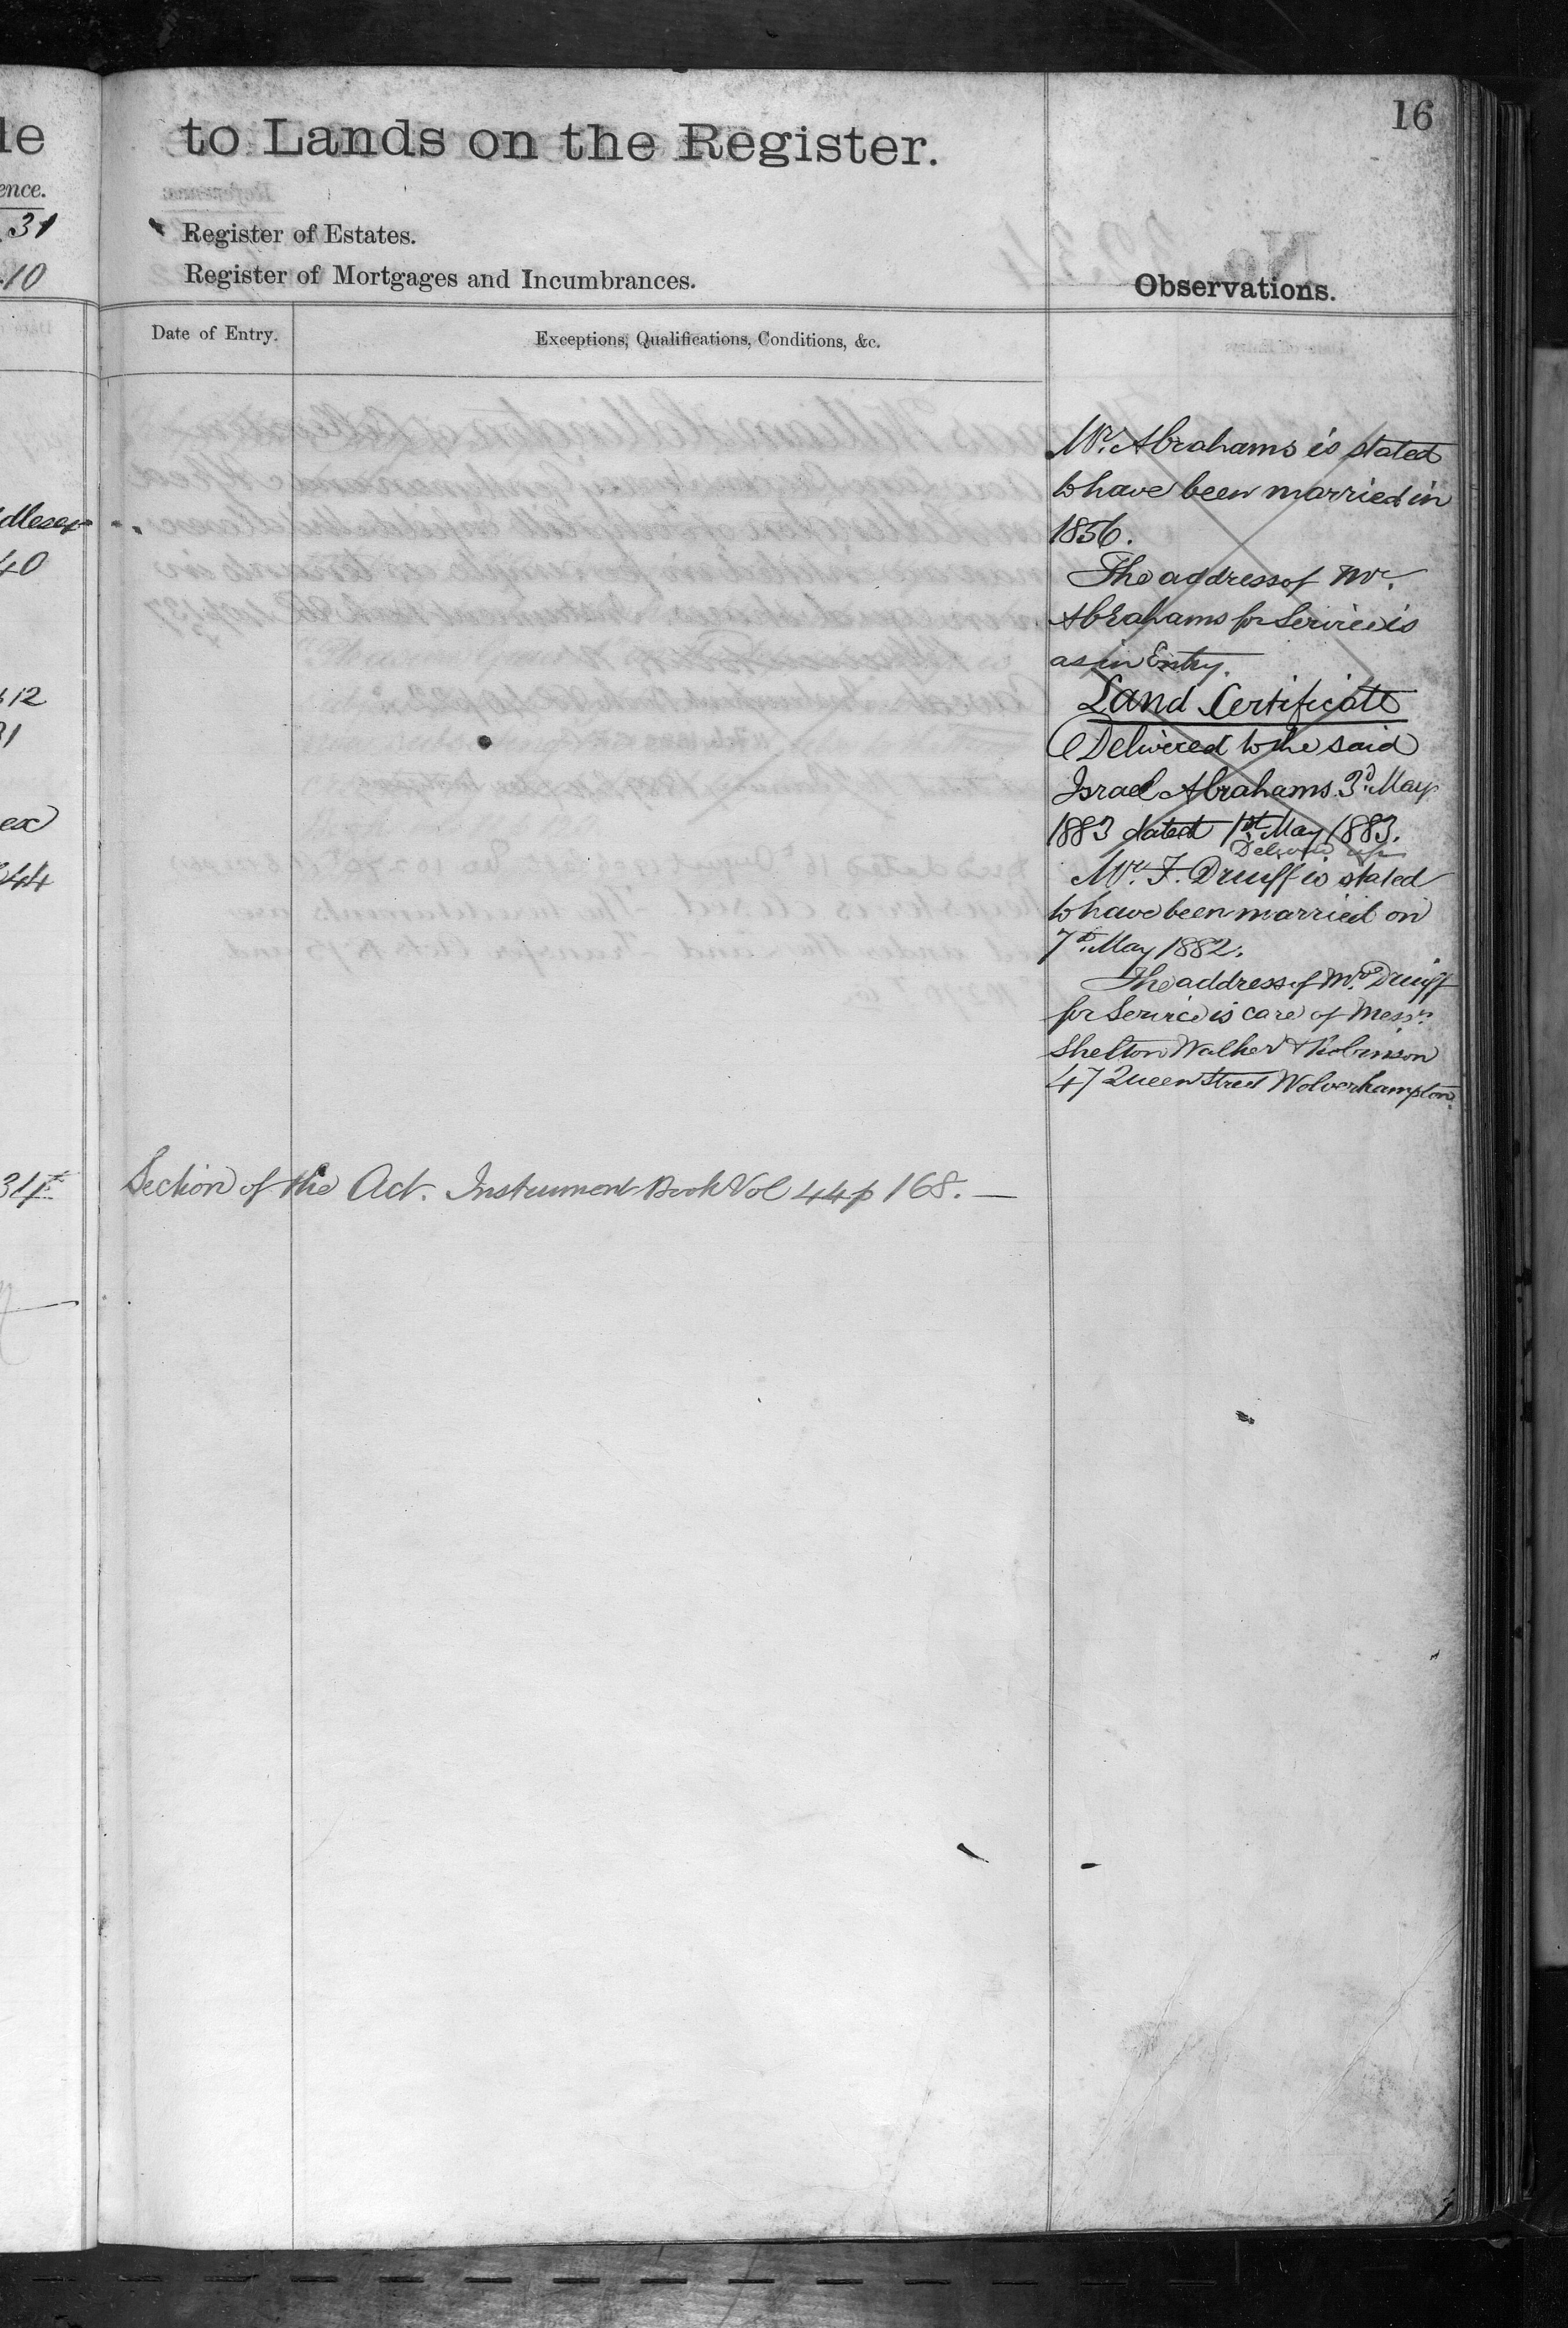 le
ence.
31
10
dlesex
40
612
31
ex
244
34
16
to Lands on the Register.
Register of Estates.
Register of Mortgages and Incumbrances.
Observations.
Date of Entry.
Exceptions, Qualifications, Conditions, &c.
Mr. Abrahams is stated
to have been married in
1856.
The address of Mr.
Abrahams for Service is
as in Entry.
Land Certificate
Delivered to the said
Israel Abrahams 3d. May
1883 dated 1st May 1883.
Delivered up
Mr. F. Druiff is stated
to have been married on
7th. May 1882.
The address of Mr. Druiff
for Service is care of Messrs.
Shelton Walker & Robinson
47 Queen Street Wolverhampton.
Section of the Act. Instrument Book Vol 44 p 168. —